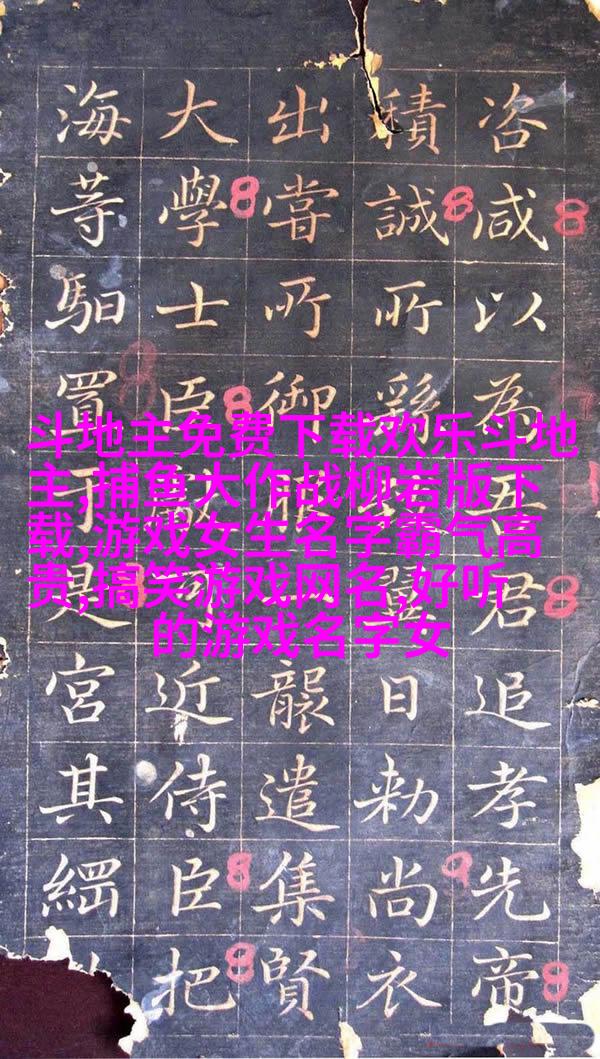 咨咸以為五君追孝先帝
積誠所翌日勑尚衣
出嘗所御服襲遣集賢
大學士臣近侍臣把
海䓁馹置于是宮其
斗地主免费下载欢乐斗地
主,捕鱼大作战柳岩版下
载,游戏女生名字霸气高
贵,搞笑游戏网名,好听
的游戏名字女